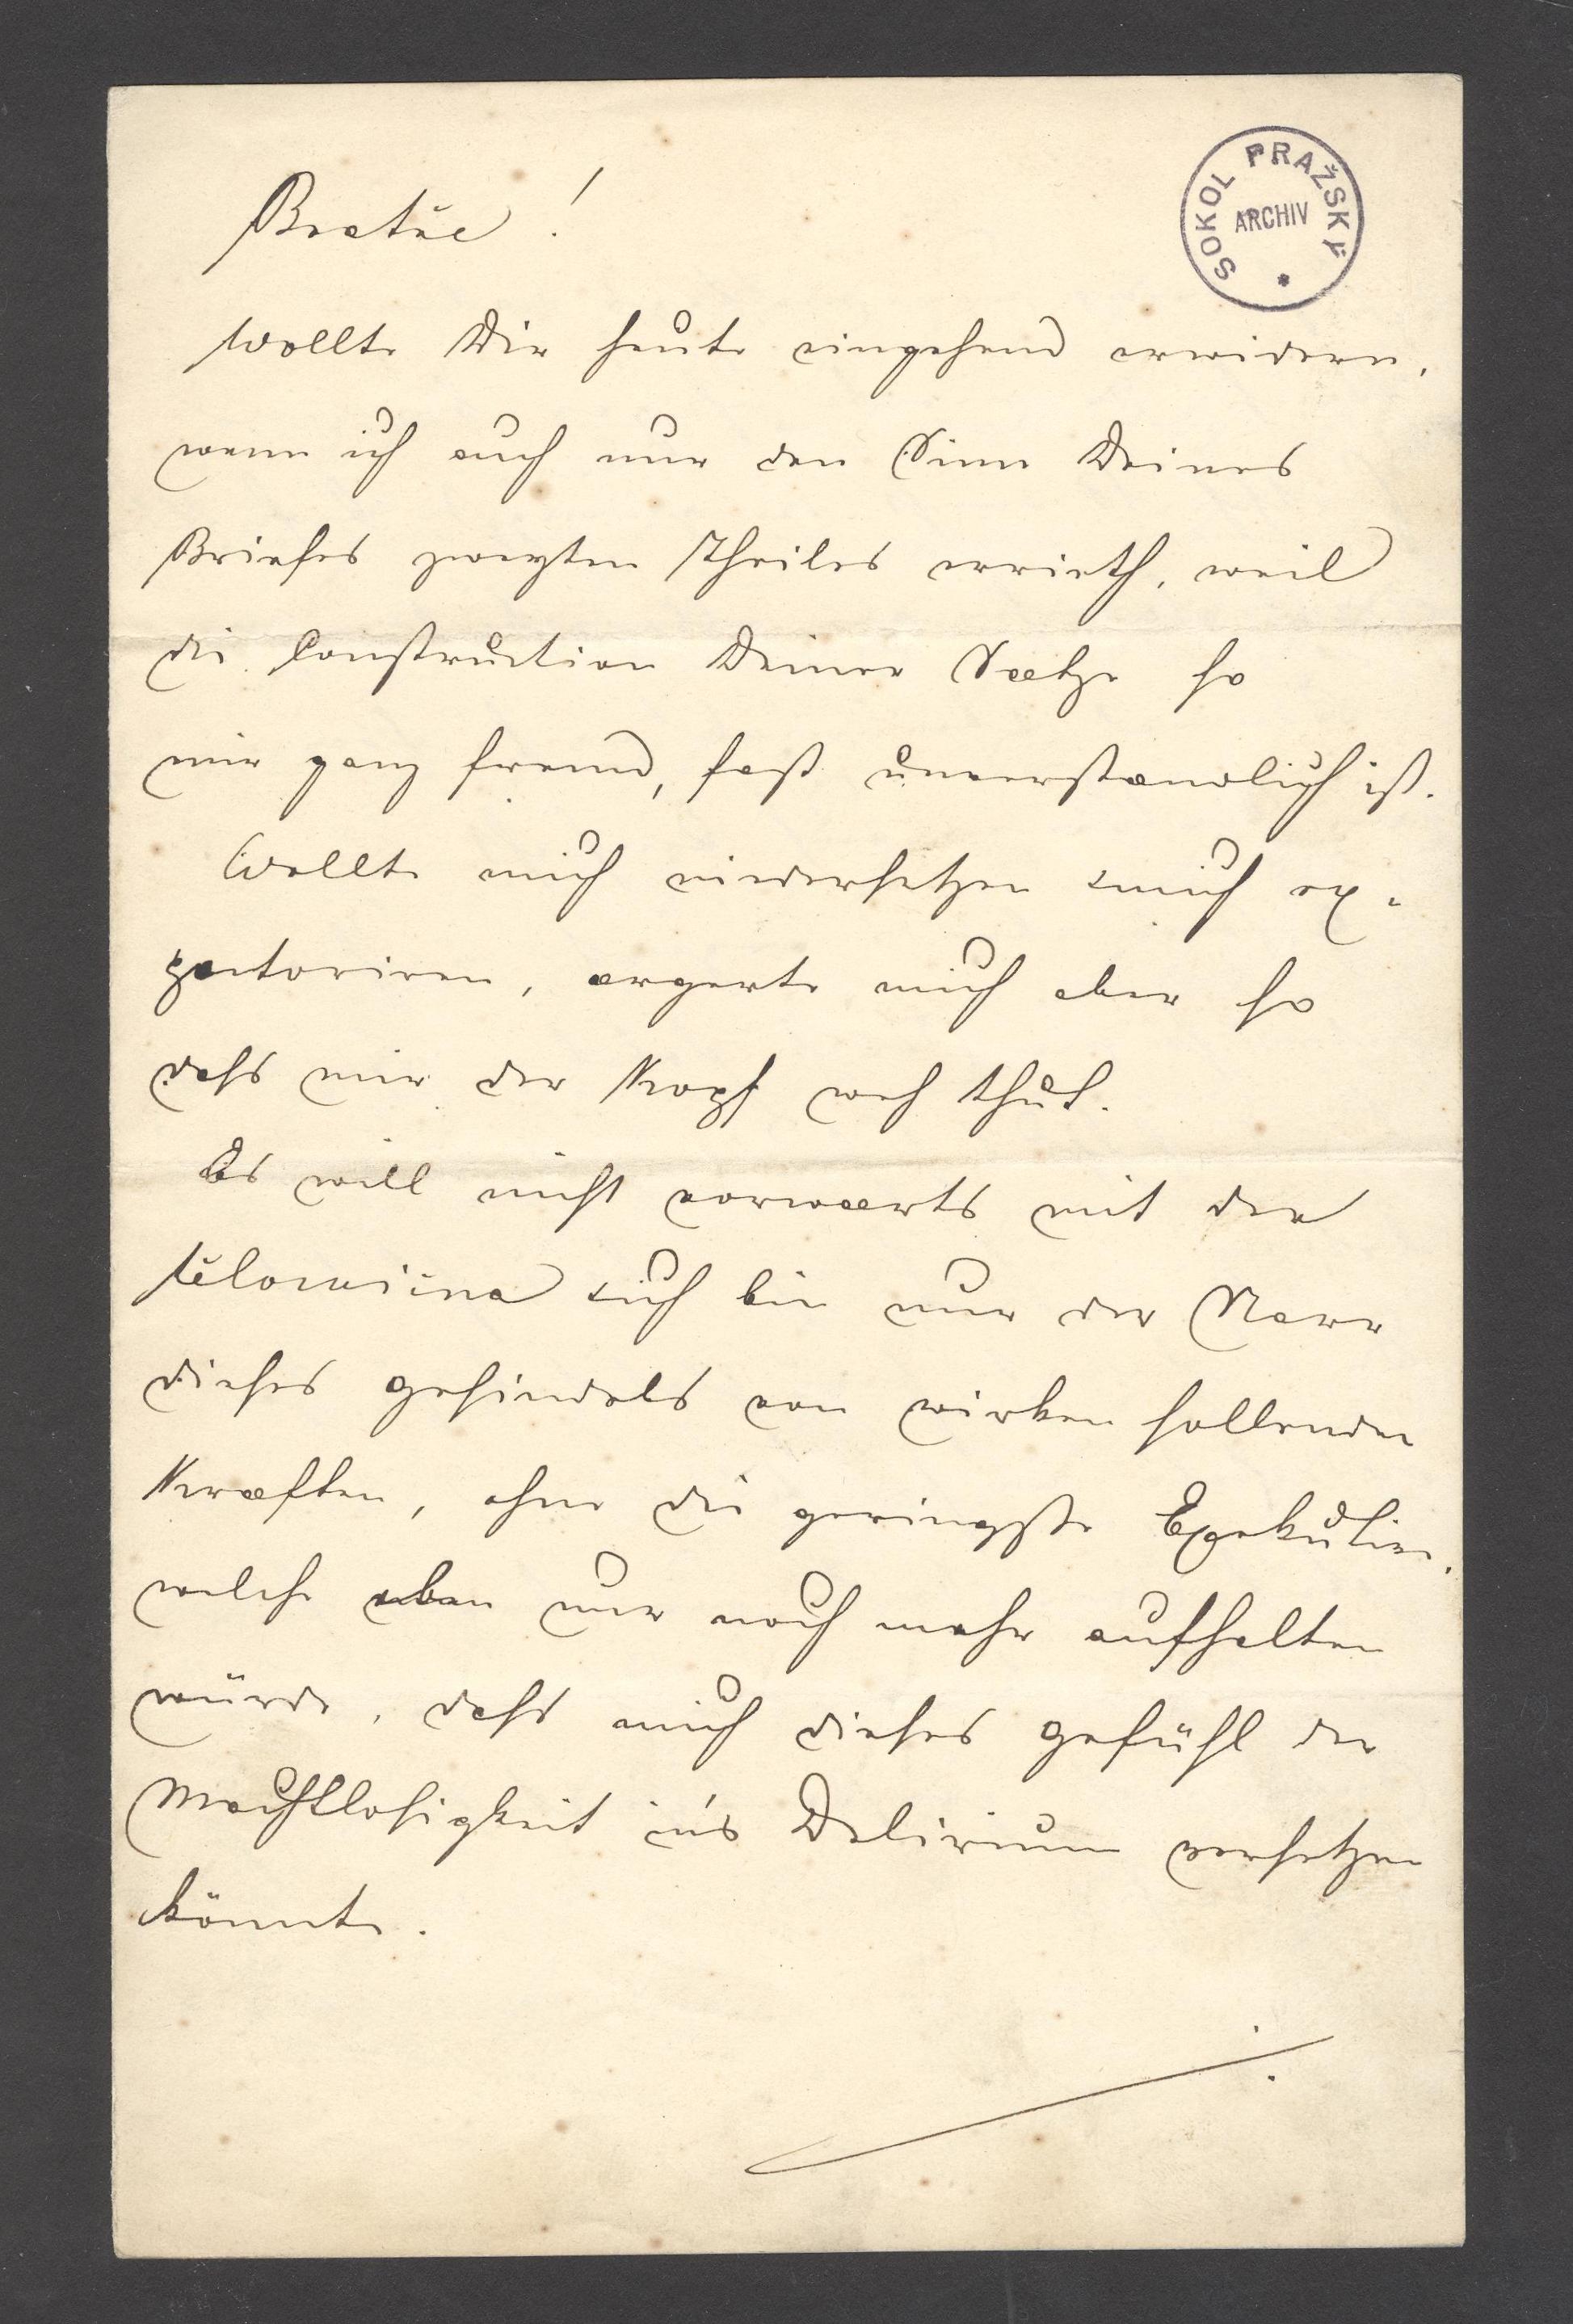 SOKOL PRAŽSKÝ
ARCHIV
Bratře!
Wollte Dir heute eingehend erwidern,
wenn ich auch nur den Sinn Deines
Briefes zweyten Theiles errieth, weil
die Construction Deiner Saetze so
mir ganz fremd, fast unverstaendlich ist.
Wollte mich niedersetzen & mich ex-
pectoriren, aergerte mich aber so
dass mir der Kopf weh thut.
Es will nicht vorwaerts mit der
tělocvična & ich bin nur der Narr
dieses Gesindels von wirken sollenden
Kraeften, ohne die geringste Exekution,
welche eben nur noch mehr aufhalten
würde, dass mich dieses Gefühl der
Machtlosigkeit in's Delirium versetzen
könnte.